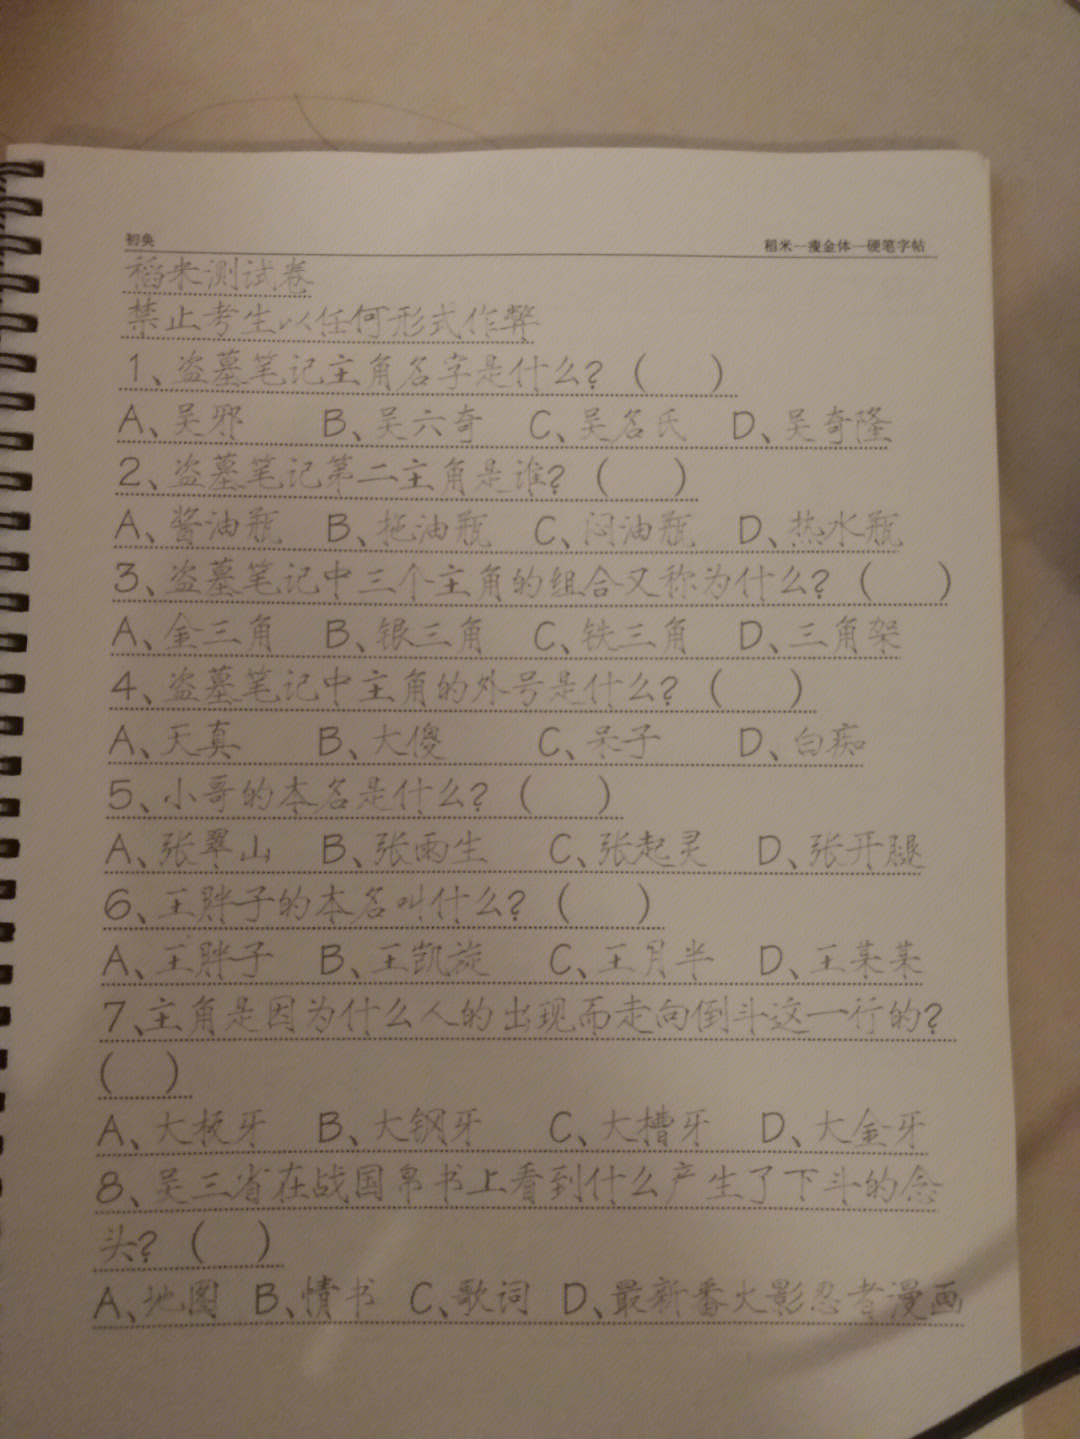 初奂
稻米—瘦金体—硬笔字帖
稻米测试卷
禁止考生以任何形式作弊
1、盗墓笔记主角名字是什么?( )
A、吴邪 B、吴六奇 C、吴名氏 D、吴奇隆
2、盗墓笔记第二主角是谁?( )
A、酱油瓶 B、拖油瓶 C、闷油瓶 D、热水瓶
3、盗墓笔记中三个主角的组合又称为什么?( )
A、金三角 B、银三角 C、铁三角 D、三角架
4、盗墓笔记中主角的外号是什么?( )
A、天真 B、大傻 C、呆子 D、白痴
5、小哥的本名是什么?( )
A、张翠山 B、张雨生 C、张起灵 D、张开腿
6、王胖子的本名叫什么?( )
A、王胖子 B、王凯旋 C、王月半 D、王某某
7、主角是因为什么人的出现而走向倒斗这一行的?
( )
A、大板牙 B、大钢牙 C、大槽牙 D、大金牙
8、吴三省在战国帛书上看到什么产生了下斗的念
头?( )
A、地图 B、情书 C、歌词 D、最新番火影忍者漫画